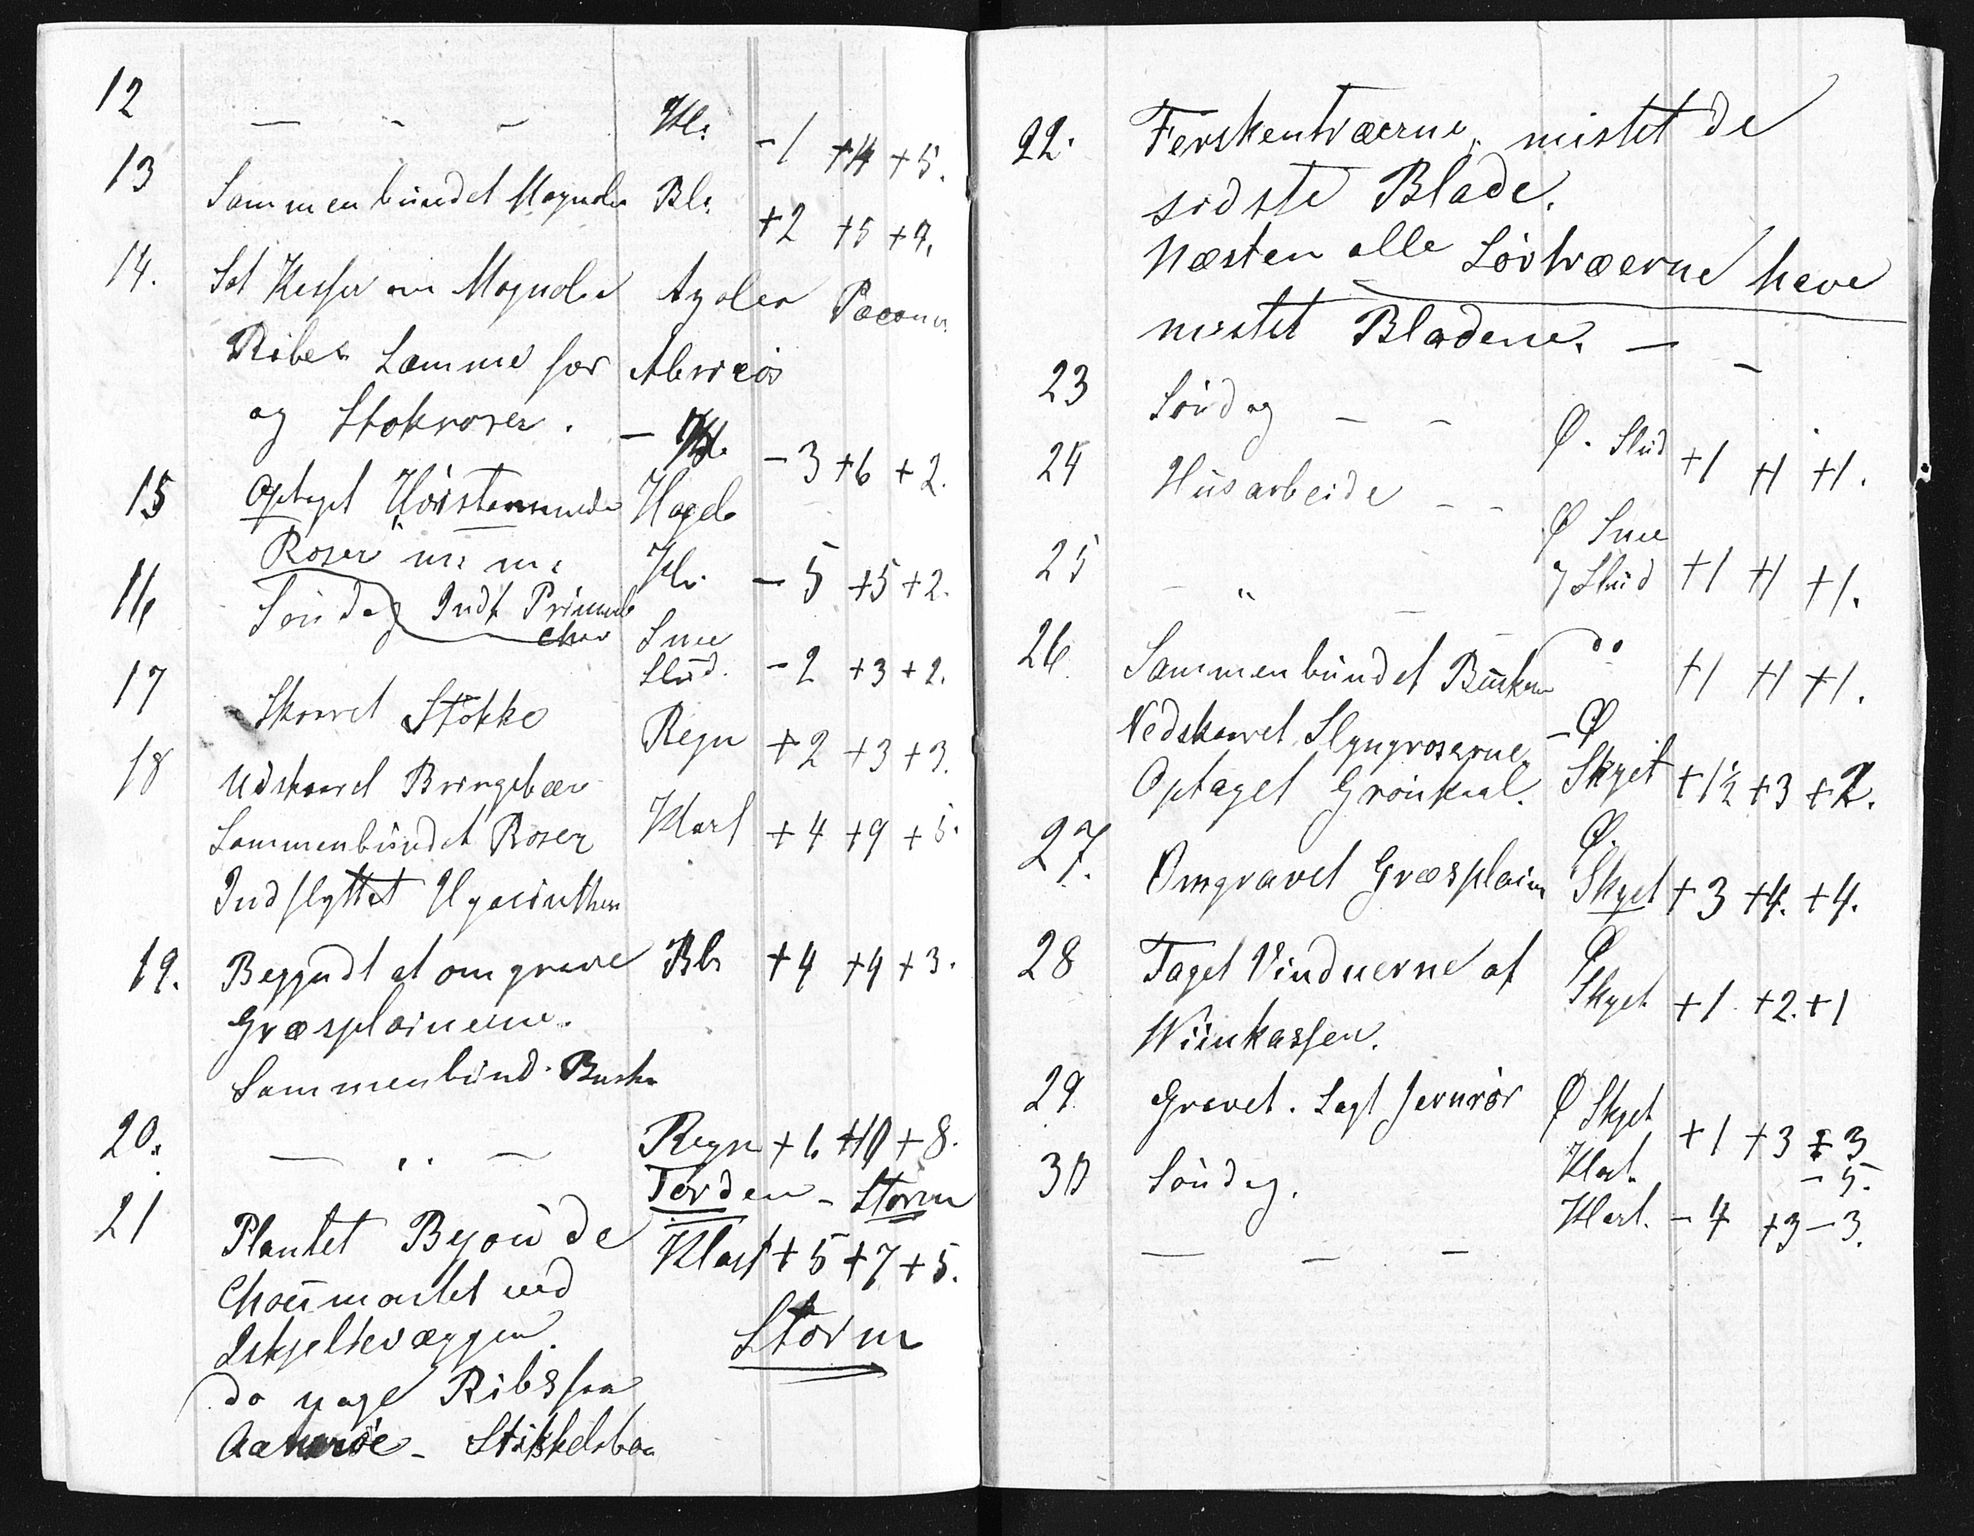 12 — - — Kl: -1 +4 +5.
13 Sammenbundet Magnolia Bl: +2 +5 +7.
14. Sat Kasser om Magnolia Azalea Pæonia
Ribes Samme for Abricos
og Stokroser. — Kl. -3 +6 +2.
15 Optaget Høistammede Hagel
Roser m: m: Kl: -5 +5 +2.
16 Søndag Indt Primula
chor Snee
Slud. -2 +3 +2.
17 Skaaret Stokke Regn +2 +3 +3.
18 Udskaaret Bringebær
Sammenbundet Roser Klart +4 +9 +5.
Indflyttet Hyacinther
19. Begyndt at omgrave Bl: +4 +4 +3.
Græsplainerne.
Sammenbund. Buske
20. — " — Regn +6 +10 +8.
Torden - Storm
21 Plantet Byou de Klart +5 +7 +5.
Choumontel ved
Iskjeltevæggen. Storm
do nye Ribs fra
Stikkelsbær
22. Ferskentræerne mistet de
sidste Blade.
Næsten alle Løvtræerne have
mistet Bladene. — —
23 Søndag — — Ø. Slud +1 +1 +1.
24 Husarbeide - - Ø Snee
25 - " - Slud +1 +1 +1.
26 Sammenbundet Buskene do +1 +1 +1.
Nedskaaret Slyngroserne. - Ø
Optaget Grønkaal. Skyet +1½ +3 +2.
27. Omgravet Græsplainen Ø. Skyet +3 +4. +4.
28 Taget Vinduerne af Ø Skyet +1 +2. +1
Wiinkassen.
29 Gravet. Lagt Jernrør Ø Skyet +1 +3 +3
30 Søndag. Klart. -5.
Klart. -4 +3 -3.
— — —